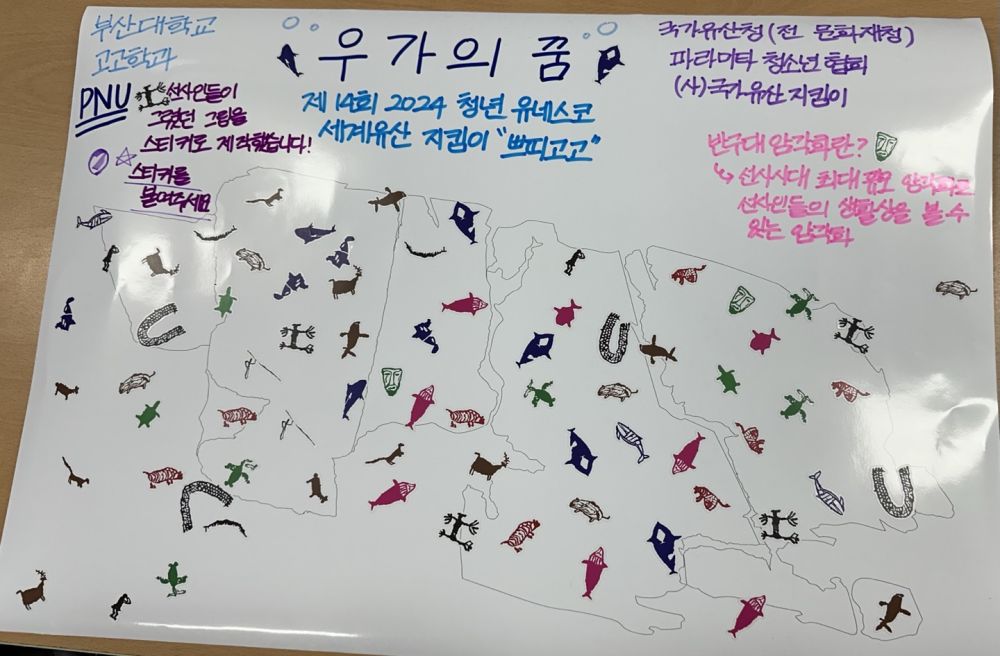 부산대학교
고고학과
PNU
선사인들이
그렸던 그림을
스티커로 제작했습니다!
스티커를
붙여주세요
우가의 꿈
제 14회 2024 청년 유네스코
세계유산 지킴이 "쁘띠고고"
국가유산청 (전 문화재청)
파라미타 청소년 협회
(사)국가유산 지킴이
반구대 암각화란?
↳ 선사시대 최대 규모 암각화로
선사인들의 생활상을 볼 수
있는 암각화